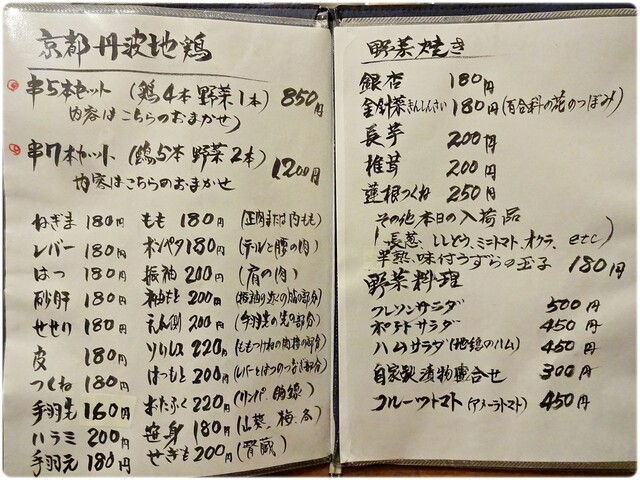 京都丹波地鶏
串5本セット (鶏4本 野菜1本) 850円
内容はこちらのおまかせ)
串7本セット (鶏5本 野菜2本) 1200円
内容はこちらのおまかせ
ねぎま 180円
レバー 180円
はつ 180円
砂肝 180円
せせり 180円
皮 180円
つくね 180円
手羽先 160円
ハラミ 200円
手羽元 180円
もも 180円 (正肉または内もも)
ボンペタ 180円 (テールと腰の肉)
振袖 200円 (肩の肉)
袖もと 200円 (振袖の近くの胸の部分)
えんぴ 200円 (手羽先の先の部分)
ソリレス 220円 (ももつけねの肉)
はつもと 200円 (レバーとはつのつなぎ部分)
おたふく 220円 (リンパ 胸腺)
笹身 180円 (山葵、梅、)
せぎも 200円 (腎臓)
野菜焼き
銀杏 180円
金針菜きんしんさい 180円 (百合科の花のつぼみ)
長芋 200円
椎茸 200円
蓮根つくね 250円
その他本日の入荷品
(長葱、ししとう、ミニトマト、オクラ、etc)
半熟味付うずらの玉子 180円
野菜料理
フレンチサラダ 500円
ポテトサラダ 450円
ハムサラダ (地鶏のハム) 450円
自家製漬物盛合せ 300円
フルーツトマト (アメーラトマト) 450円